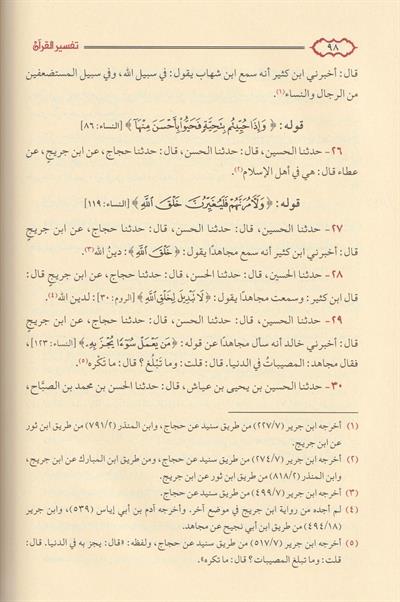 ٩٨
تفسير القرآن
قال: أخبرني ابن كثير أنه سمع ابن شهاب يقول: في سبيل الله، وفي سبيل المستضعفين
من الرجال والنساء(١).
قوله: ﴿وَإِذَا حُيِّيتُم بِتَحِيَّةٍ فَحَيُّوا۟ بِأَحْسَنَ مِنْهَآ﴾ [النساء: ٨٦]
٢٦- حدثنا الحسين، قال: حدثنا الحسن، قال: حدثنا حجاج، عن ابن جريج، عن
عطاء قال: هي في أهل الإسلام(٢).
قوله: ﴿وَلَءَامُرَنَّهُمْ فَلَيُغَيِّرُنَّ خَلْقَ اللَّهِ﴾ [النساء: ١١٩]
٢٧- حدثنا الحسين، قال: حدثنا الحسن، قال: حدثنا حجاج، عن ابن جريجٍ
قال: أخبرني ابن كثير أنه سمع مجاهدًا يقول: ﴿خَلْقَ اللَّهِ﴾: دينُ الله(٣).
٢٨- حدثنا الحسين، قال: حدثنا الحسن، قال: حدثنا حجاج، عن ابن جريج قال:
قال ابن كثير: وسمعت مجاهدًا يقول: ﴿لَا نَبْدِيلَ لِخَلْقِ اللَّهِ﴾ [الروم: ٣٠]: لدين الله(٤).
٢٩- حدثنا الحسين، قال: حدثنا الحسن، قال: حدثنا حجاج، عن ابن جريجٍ
قال: أخبرني خالد أنه سأل مجاهدًا عن قوله: ﴿مَن يَعْمَلْ سُوٓءًا يُجْزَ بِهِۦ﴾ [النساء: ١٢٣]،
فقال مجاهد: المصيباتُ في الدنيا. قال: قلت: وما تَبْلُغ؟ قال: ما تَكْره(٥).
٣٠- حدثنا الحسين بن يحيى بن عياش، قال: حدثنا الحسن بن محمد بن الصبَّاح،
(١) أخرجه ابن جرير (٢٢٧/٧) من طريق سنيد عن حجاج، وابن المنذر (٧٩١/٢) من طريق ابن ثور
عن ابن جريج.
(٢) أخرجه ابن جرير (٢٧٤/٧) من طريق سنيد عن حجاج، ومن طريق ابن المبارك عن ابن جريج،
وابن المنذر (٨١٨/٢) من طريق ابن ثور عن ابن جريج.
(٣) أخرجه ابن جرير (٤٩٩/٧) من طريق سنيد عن حجاج.
(٤) لم أجده من رواية ابن جريج في موضع آخر. وأخرجه آدم بن أبي إياس (٥٣٩)، وابن جرير
(٤٩٤/١٨) من طريق ابن أبي نجيح عن مجاهد.
(٥) أخرجه ابن جرير (٥١٧/٧) من طريق سنيد عن حجاج، ولفظه: «قال: يجز به في الدنيا. قال:
قلت: وما تبلغ المصيبات؟ قال: ما تكره».